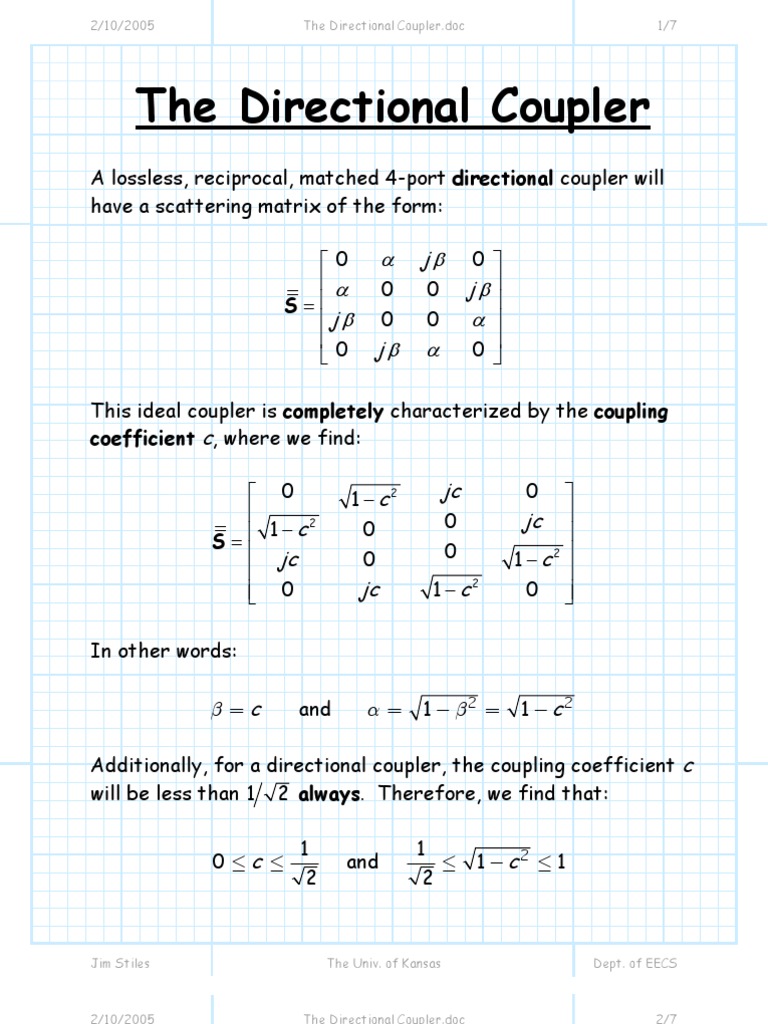 2/10/2005 The Directional Coupler.doc 1/7
The Directional Coupler
A lossless, reciprocal, matched 4-port directional coupler will
have a scattering matrix of the form:
0 α jβ 0
α 0 0 jβ
S̿ =
jβ 0 0 α
0 jβ α 0
This ideal coupler is completely characterized by the coupling
coefficient c, where we find:
0 √1 − c² jc 0
√1 − c² 0 0 jc
S̿ =
jc 0 0 √1 − c²
0 jc √1 − c² 0
In other words:
β = c and α = √1 − β² = √1 − c²
Additionally, for a directional coupler, the coupling coefficient c
will be less than 1/√2 always. Therefore, we find that:
0 ≤ c ≤ 1/√2 and 1/√2 ≤ √1 − c² ≤ 1
Jim Stiles The Univ. of Kansas Dept. of EECS
2/10/2005 The Directional Coupler.doc 2/7